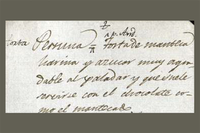 f.
s. p. And.
torta. Perruna = Torta de manteca
harina y azucar muy agra
dable al paladar y que suele
servirse con el chocolate co-
mo el mantecado